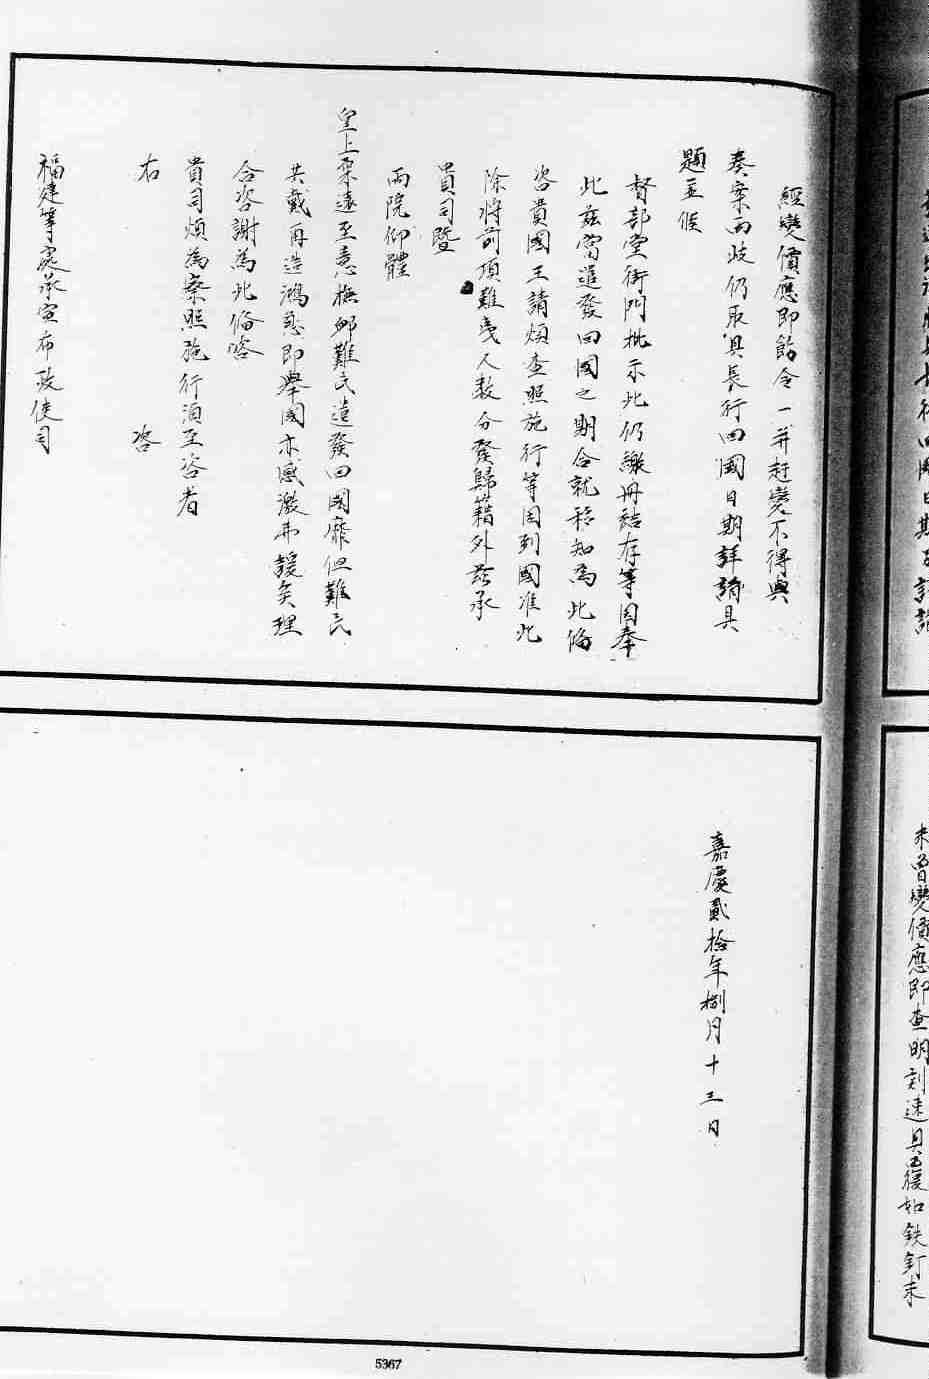 經變價應即飭令一并赶變不得與
奏案兩歧仍取具長行回國日期詳請具
題並候
督部堂衙門批示此仍繳冊結存等因奉
此茲當遣發回國之期合就移知為此備
咨貴國王請煩查照施行等因到國准此
除將前項難夷人數分發歸籍外茲承
貴司暨
兩院仰體
皇上柔遠至意撫卹難民遣發回國靡但難民
共戴再造鴻慈即舉國亦感激弗諼矣理
合咨謝為此備咨
貴司煩為察照施行須至咨者
右咨
福建等處承宣布政使司
未曾變價應即查明刻速具覆如鉄釘未
嘉慶貳拾年捌月十三日
5367